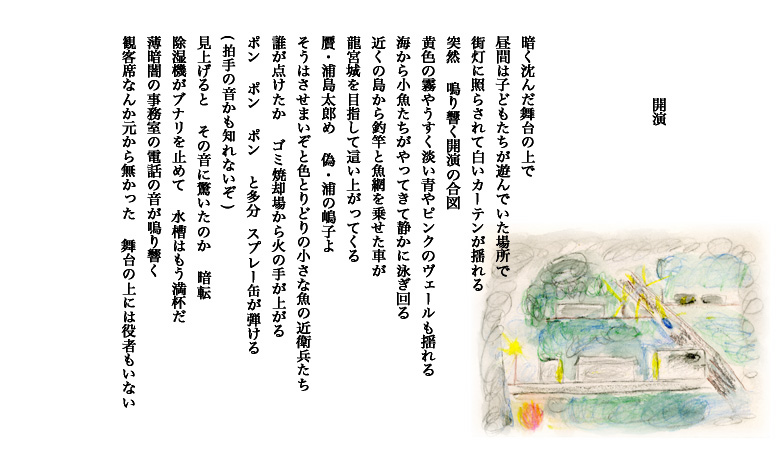 開演
暗く沈んだ舞台の上で
昼間は子どもたちが遊んでいた場所で
街灯に照らされて白いカーテンが揺れる
突然　鳴り響く開演の合図
黄色の霧やうすく淡い青やピンクのヴェールも揺れる
海から小魚たちがやってきて静かに泳ぎ回る
近くの島から釣竿と魚網を乗せた車が
龍宮城を目指して這い上がってくる
贋・浦島太郎め　偽・浦の嶋子よ
そうはさせまいぞと色とりどりの小さな魚の近衛兵たち
誰が点けたか　ゴミ焼却場から火の手が上がる
ポン　ポン　ポン　と多分　スプレー缶が弾ける
(拍手の音かも知れないぞ)
見上げると　その音に驚いたのか　暗転
除湿機がブナリを止めて　水槽はもう満杯だ
薄暗闇の事務室の電話の音が鳴り響く
観客席なんか元から無かった　舞台の上には役者もいない